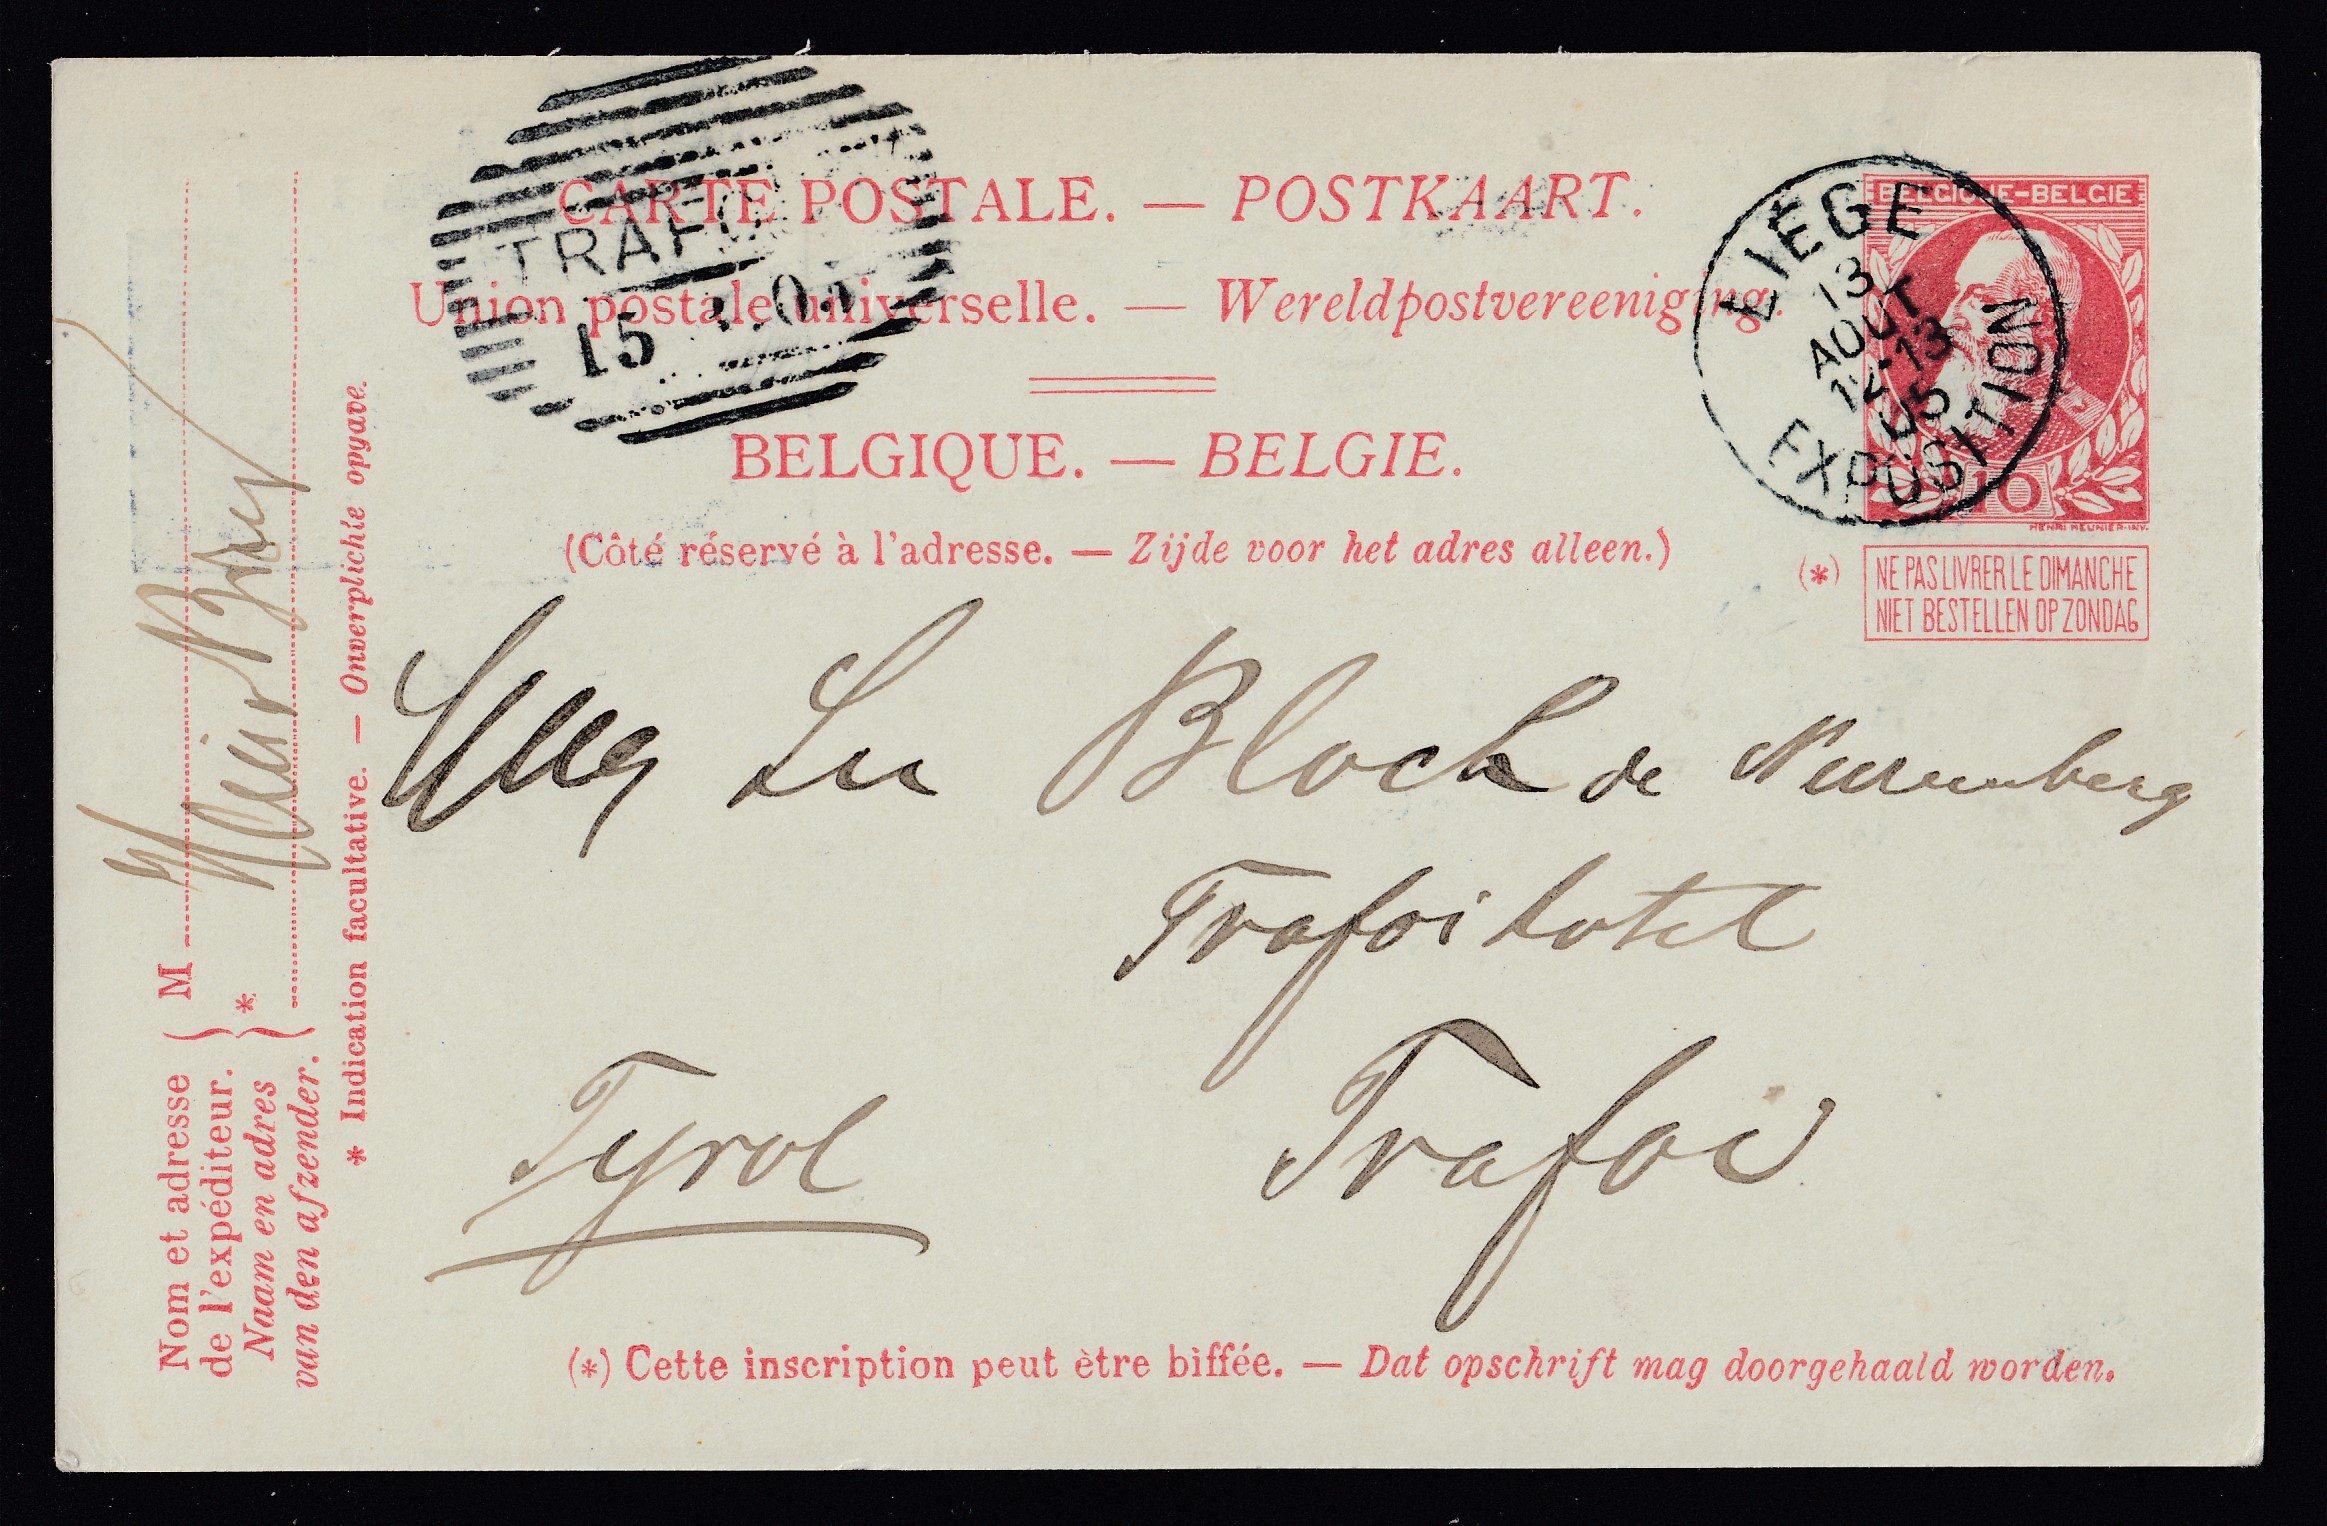 CARTE POSTALE. — POSTKAART.
Union postale universelle. — Wereldpostvereeniging.
BELGIQUE. — BELGIE.
(Côté réservé à l'adresse. — Zijde voor het adres alleen.)
TRAFO
15
LIÉGE
13
AOUT
12-13
05
EXPOSITION
BELGIQUE-BELGIE
10
HENRI MEUNIER-INV.
(*) NE PAS LIVRER LE DIMANCHE
NIET BESTELLEN OP ZONDAG
Bloch de Nuremberg
Trafoi hotel
Trafoi
Tyrol
(*) Cette inscription peut être biffée. — Dat opschrift mag doorgehaald worden.
Nom et adresse
de l'expéditeur.
Naam en adres
van den afzender.
M
*
* Indication facultative. — Onverplichte opgave.